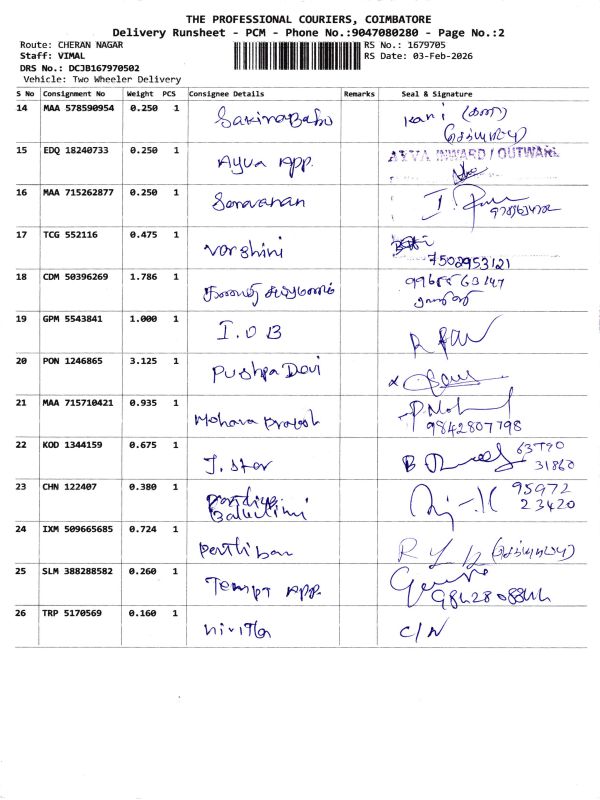 THE PROFESSIONAL COURIERS, COIMBATORE
Delivery Runsheet - PCM - Phone No.:9047080280 - Page No.:2
Route: CHERAN NAGAR
RS No.: 1679705
Staff: VIMAL
RS Date: 03-Feb-2026
DRS No.: DCJB167970502
Vehicle: Two Wheeler Delivery
S No Consignment No Weight PCS Consignee Details Remarks Seal & Signature
14 MAA 578590954 0.250 1 SakinaBabu Kani
15 EDQ 18240733 0.250 1 Ayva App. AYVA INWARD / OUTWARD
16 MAA 715262877 0.250 1 Saravanan
17 TCG 552116 0.475 1 Varshini
7502953121
18 CDM 50396269 1.786 1
19 GPM 5543841 1.000 1 I.O B
20 PON 1246865 3.125 1 Pushpa Devi
21 MAA 715710421 0.935 1 Mohana P. Mohan
9842807798
22 KOD 1344159 0.675 1 J. Star 63790
31860
23 CHN 122407 0.380 1 95972
23420
24 IXM 509665685 0.724 1 Parthiban
25 SLM 388288582 0.260 1 Tempt App.
26 TRP 5170569 0.160 1 C/N